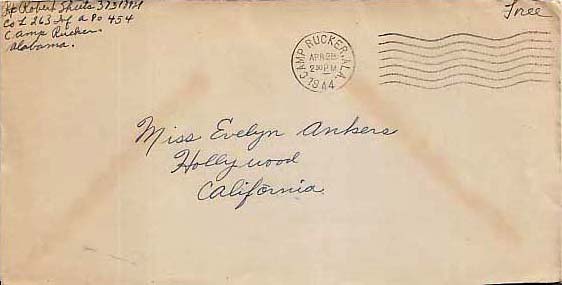 Pvt Robert Shuts
Co L 263 Inf APO 454
Camp Rucker
Alabama.
Free
CAMP RUCKER, ALA.
APR 25
2:30 PM
1944
Miss Evelyn Ankers
Hollywood
California